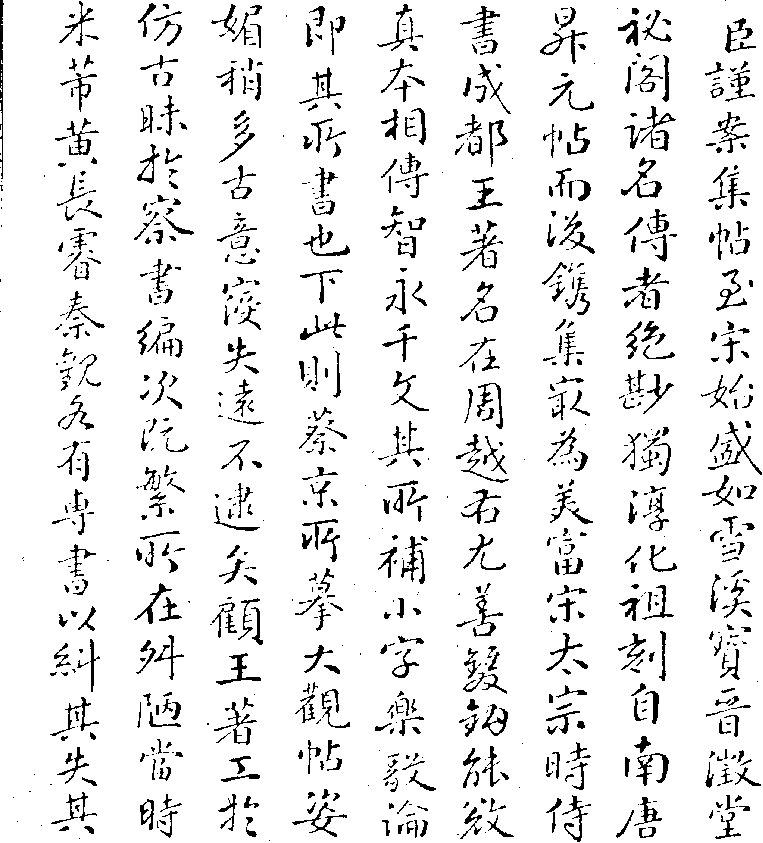 臣謹案集帖至宋始盛如雪溪寶晉澂堂
祕閣諸名傳者絶尠獨淳化祖刻自南唐
昇元帖而後鐫集最為美富宋太宗時侍
書成都王著名在周越右尤善雙鉤能效
真本相傳智永千文其所補小字樂毅論
即其所書也下此則蔡京所摹大觀帖姿
媚稍多古意寖失遠不逮矣顧王著工於
仿古昧於察書編次既繁所在舛陋當時
米芾黄長睿秦觀各有專書以糾其失其